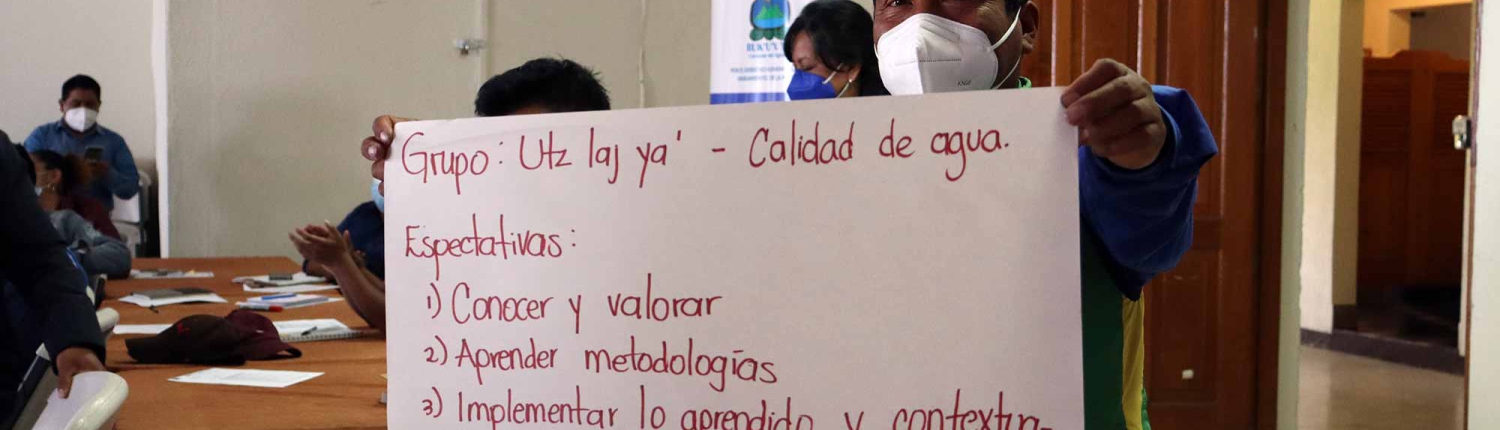 Grupo: Utz laj ya' - Calidad de agua.
Espectativas:
1) Conocer y valorar
2) Aprender metodologías
3) Implementar lo aprendido y contextua-